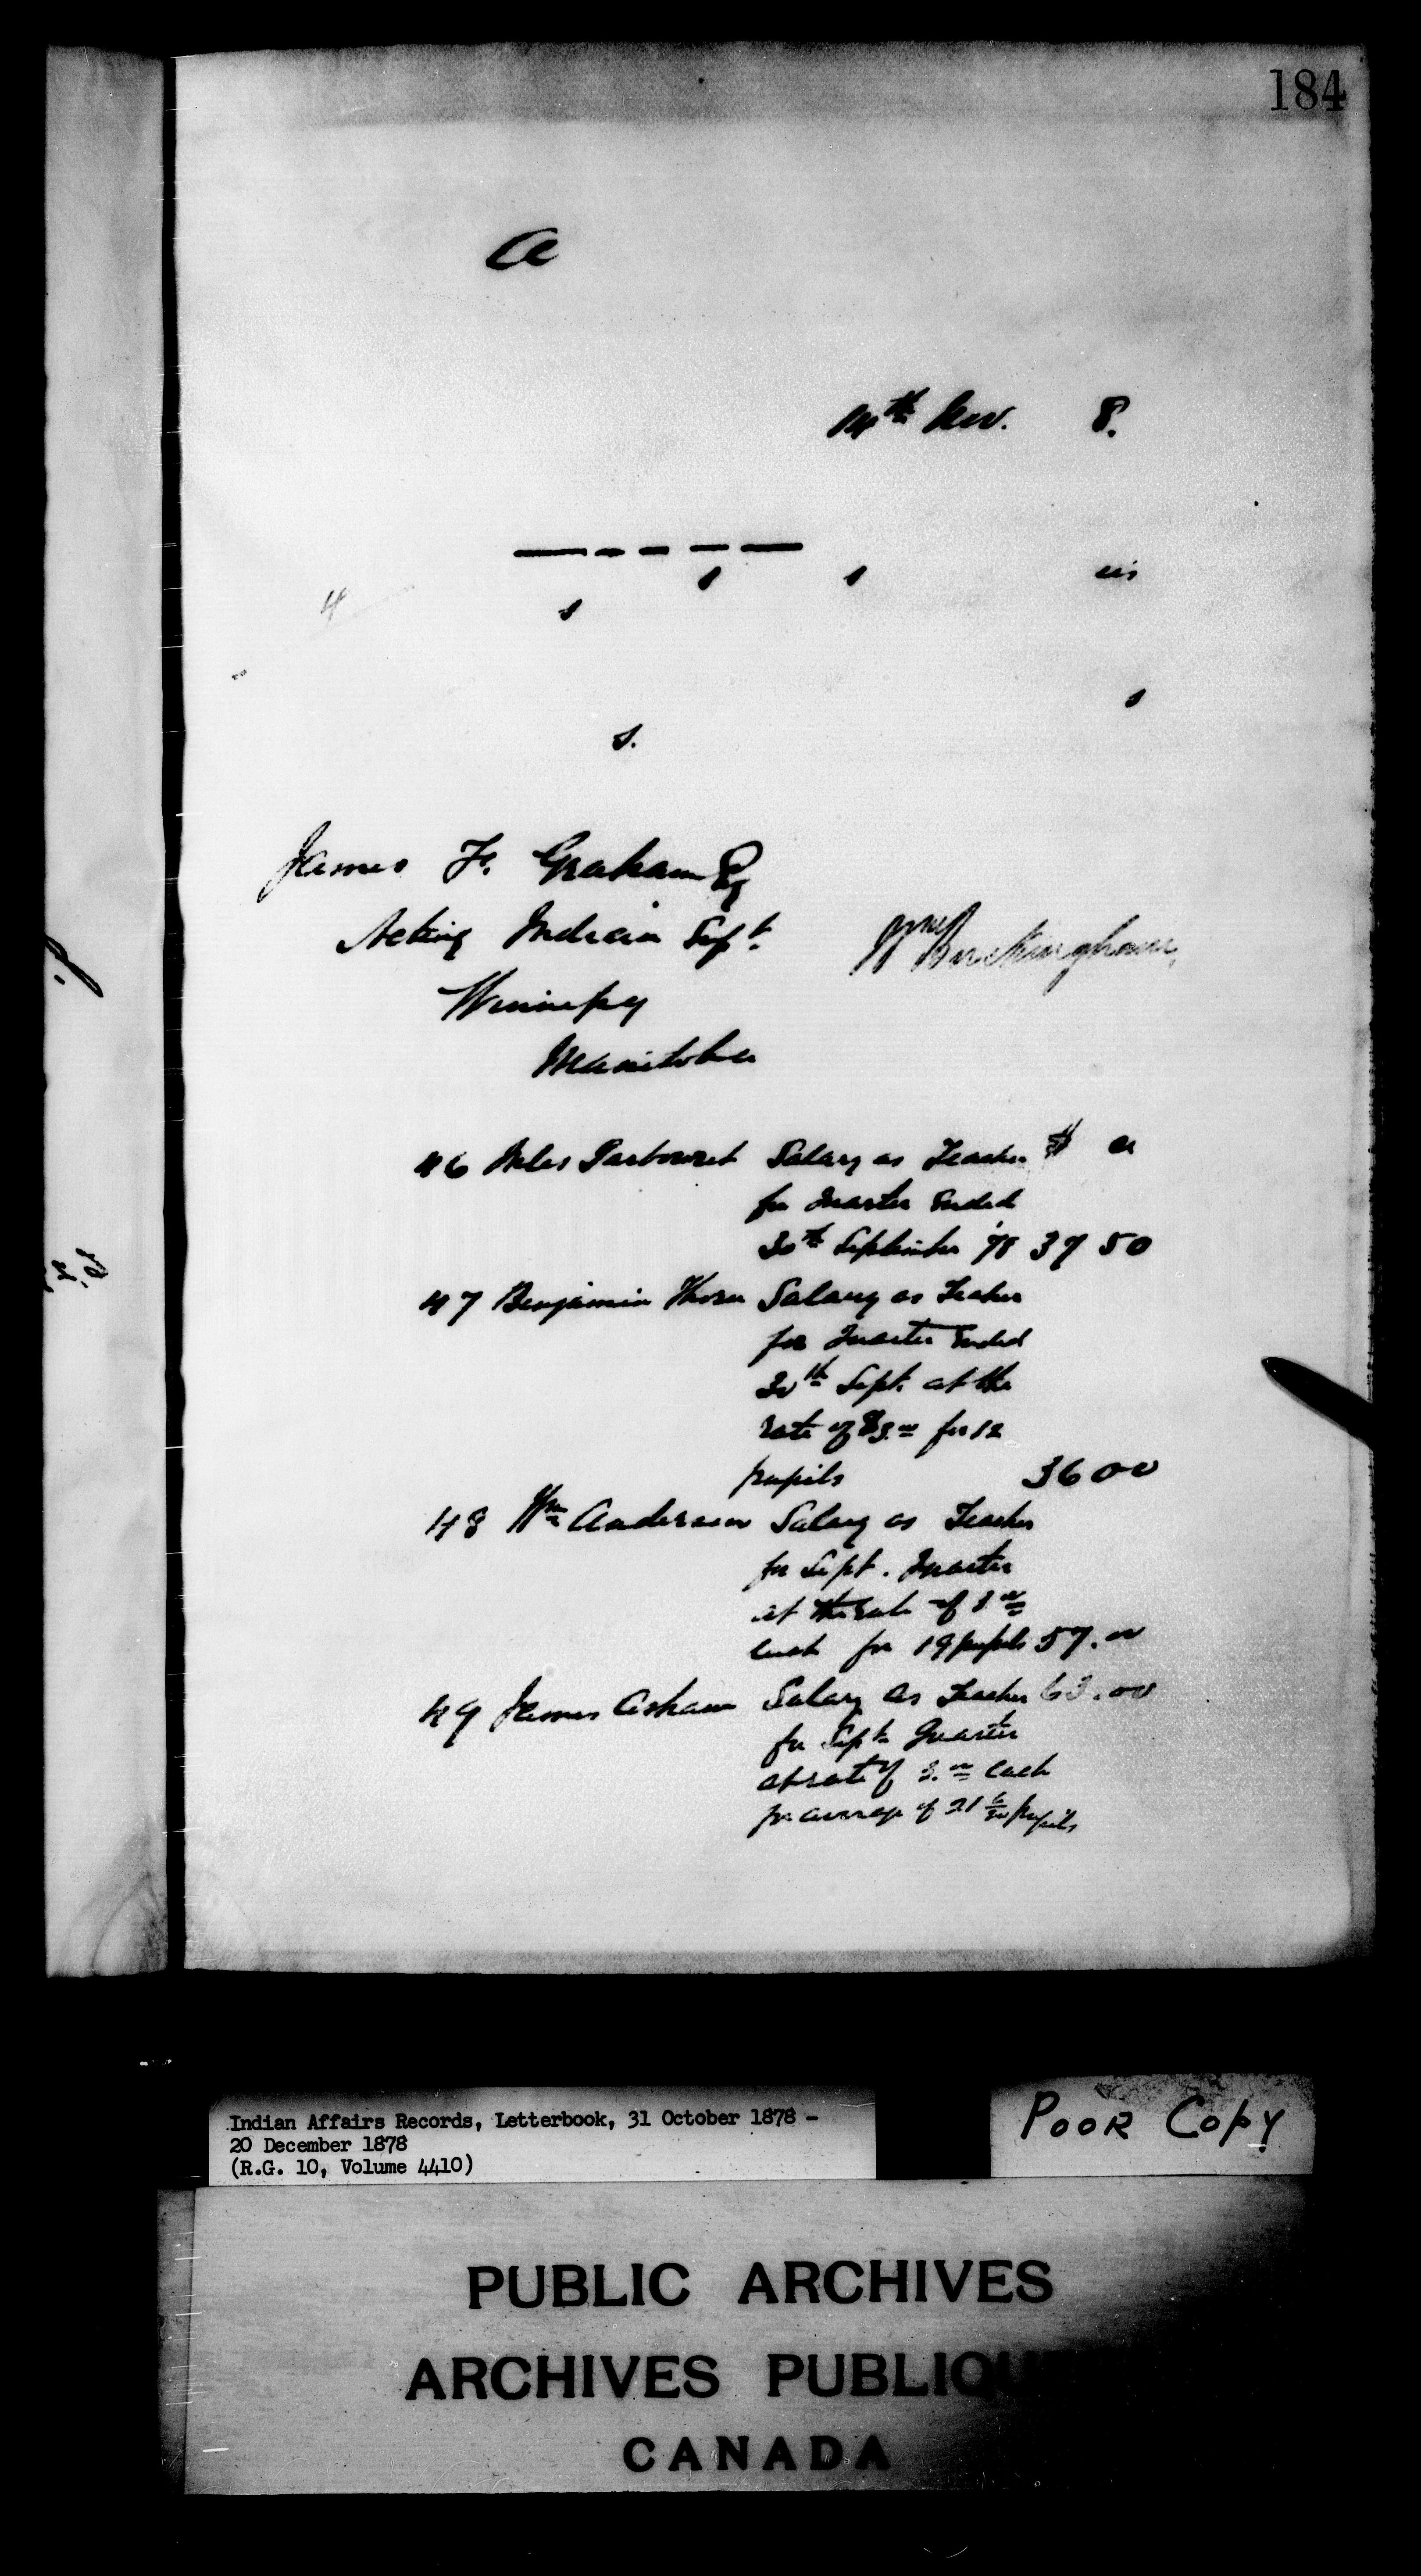 184
a
14th Nov. 8.
4
s
s.
James F. Graham Esq
Acting Indian Supt
Wm Buckingham
Winnipeg
Manitoba
46 Salary as Teacher $ c
for Quarter Ended
30th September '78 37 50
47 Benjamin Thorn Salary as Teacher
for Quarter Ended
30th Sept. at the
rate of $3.00 for 12
pupils 36 00
48 Wm Anderson Salary as Teacher
for Sept. Quarter
at the rate of 3 00
each for 19 pupils 57.00
49 James Asham Salary as Teacher 63.00
for Sept. Quarter
at rate of 3.00 each
for average of 21 pupils
Indian Affairs Records, Letterbook, 31 October 1878 -
20 December 1878
(R.G. 10, Volume 4410)
POOR COPY
PUBLIC ARCHIVES
ARCHIVES PUBLIQU
CANADA